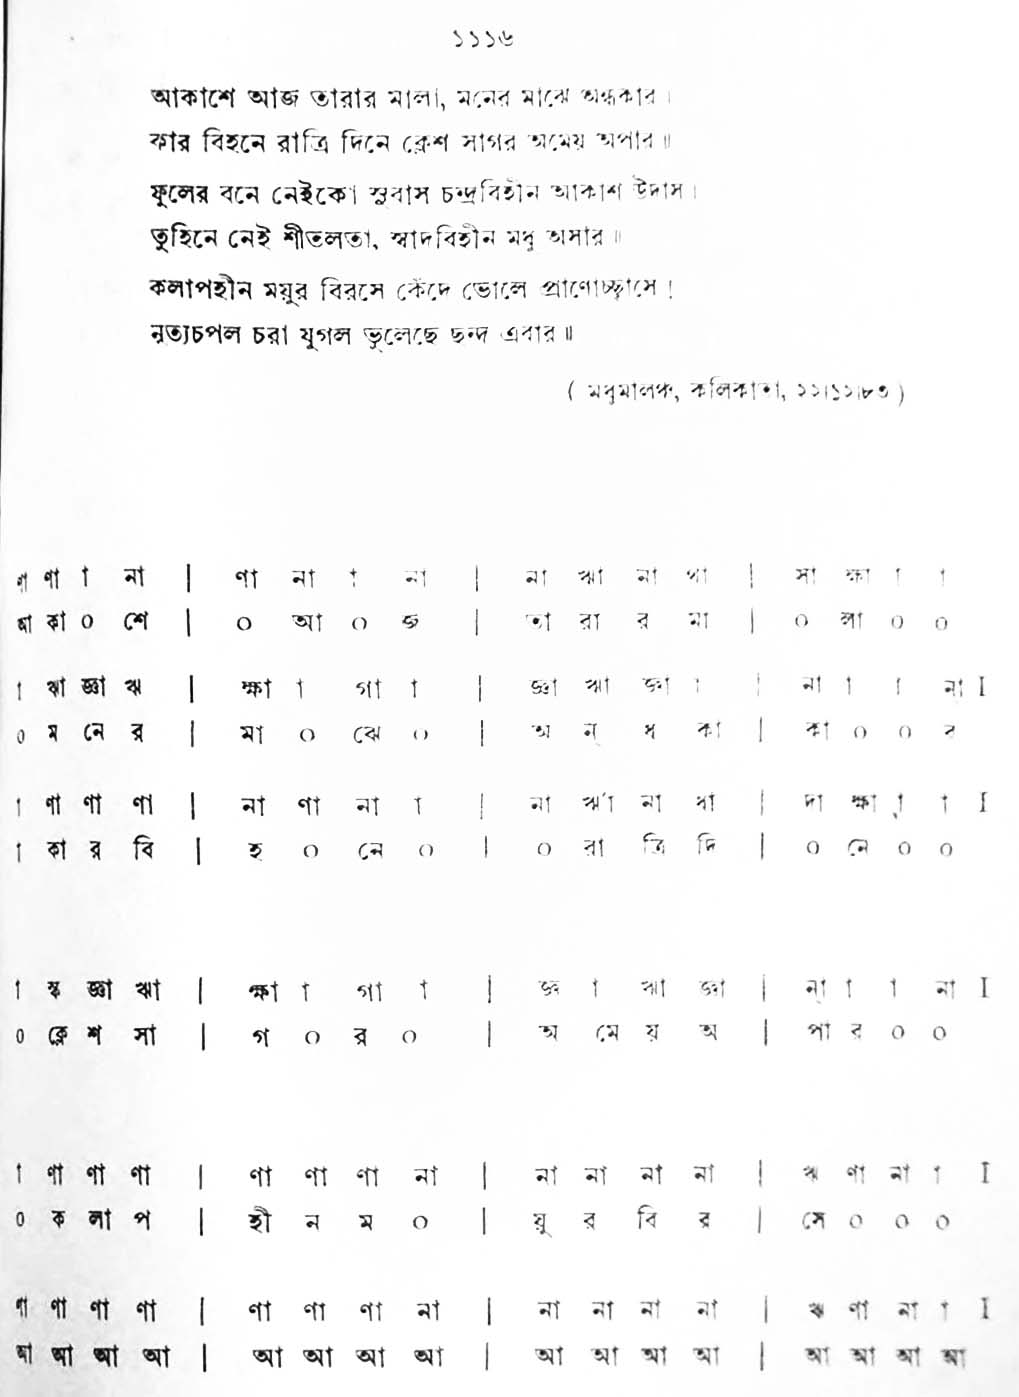 ১১১৬
আকাশে আজ তারার মালা, মনের মাঝে অন্ধকার।
কার বিহনে রাত্রি দিনে ক্লেশ সাগর অমেয় অপার॥
ফুলের বনে নেইকো সুবাস চন্দ্রবিহীন আকাশ উদাস।
তুহিনে নেই শীতলতা, স্বাদবিহীন মধু অসার॥
কলাপহীন ময়ূর বিরসে কেঁদে ভোলে প্রাণোচ্ছ্বাসে!
নৃত্যচপল চরা যুগল ভুলেছে ছন্দ এবার॥
( মধুমালঞ্চ, কলিকাতা, ২১।১১।৮৩ )
ণা ণা া না | ণা না া না | না ঋা না ধা | সা ক্ষা া া
আ কা ০ শে | ০ আ ০ জ | তা রা র মা | ০ লা ০ ০
া ঋা জ্ঞা ঋ | ক্ষা া গা া | জ্ঞা ঋা জ্ঞা া | না া া না I
০ ম নে র | মা ০ ঝে ০ | অ ন্ ধ কা | কা ০ ০ র
া ণা ণা ণা | না ণা না া | না ঋা না ধা | দা ক্ষা া া I
া কা র বি | হ ০ নে ০ | ০ রা ত্রি দি | ০ নে ০ ০
া ঋ জ্ঞা ঋা | ক্ষা া গা া | জ্ঞ া ঋা জ্ঞা | না া া না I
০ ক্লে শ সা | গ ০ র ০ | অ মে য় অ | পা র ০ ০
া ণা ণা ণা | ণা ণা ণা না | না না না না | ঋ ণা না া I
০ ক লা প | হী ন ম ০ | য়ূ র বি র | সে ০ ০ ০
ণা ণা ণা ণা | ণা ণা ণা না | না না না না | ঋ ণা না া I
আ আ আ আ | আ আ আ আ | আ আ আ আ | আ আ আ আ